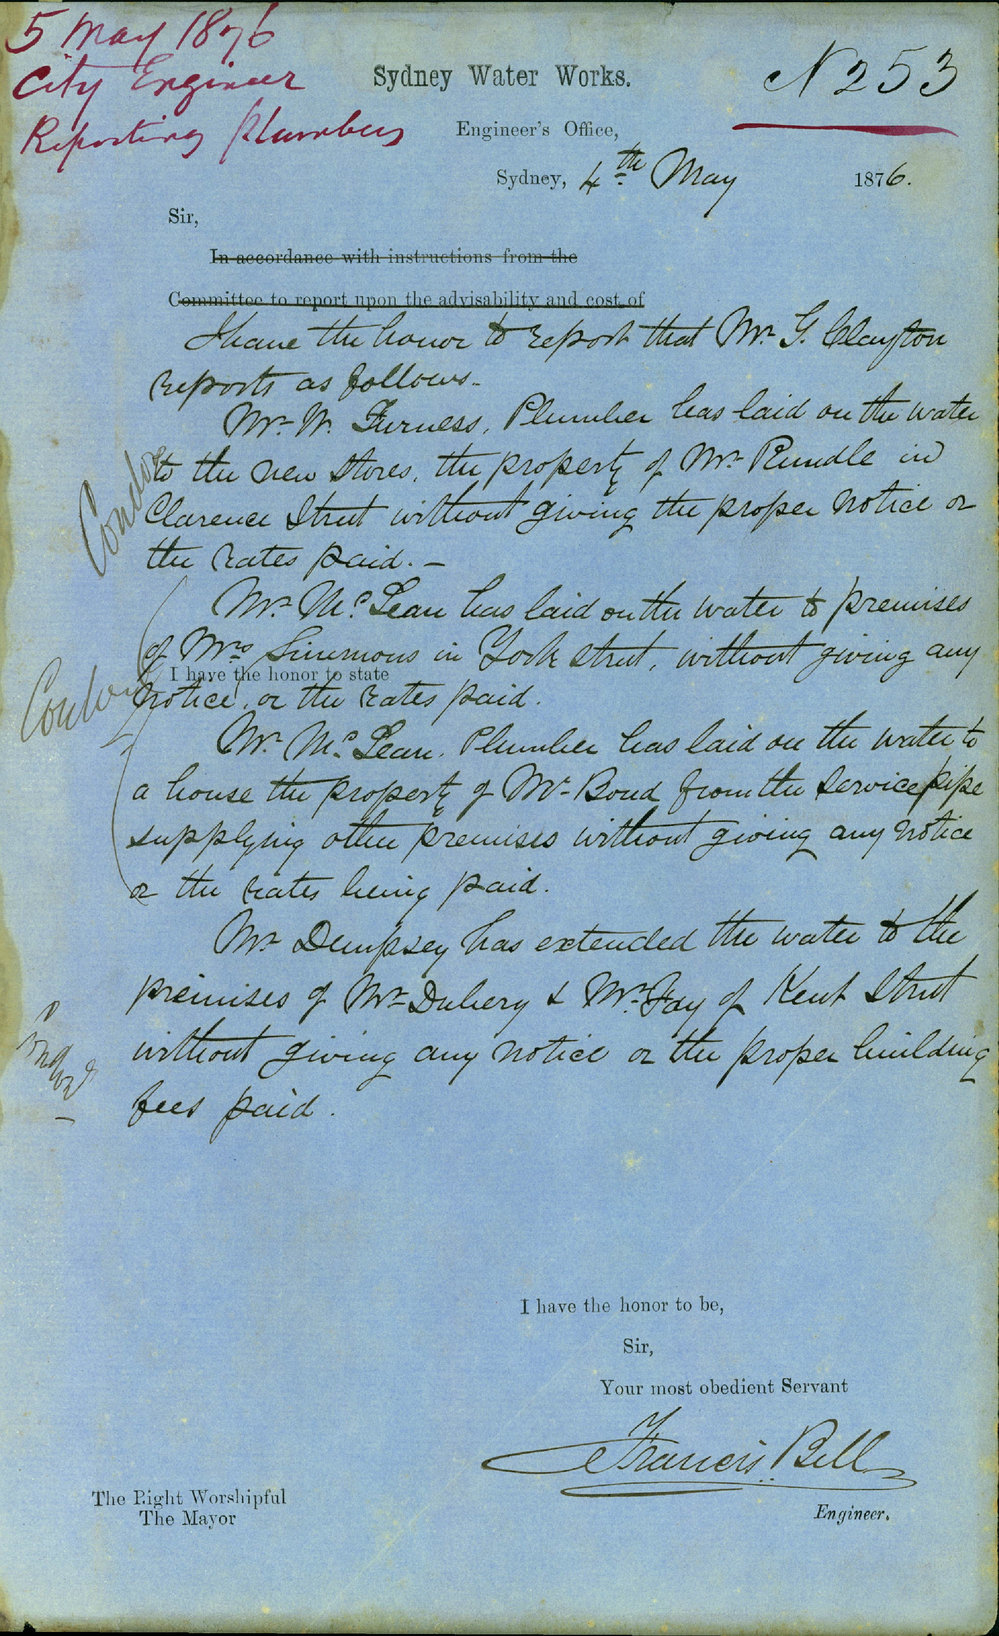 5 May 1876
City Engineer
Reporting Plumbers
N 253
Sydney Water Works.
Engineer's Office,
Sydney, 4th May 1876.
Sir,
In accordance with instructions from the
Committee to report upon the advisability and cost of
I have the honor to report that Mr G. Clayton
reports as follows.
Mr W. Furness, Plumber has laid on the water
to the new Stores, the property of Mr Rundle in
Clarence Street without giving the proper notice or
the rates paid. —
Mr McLean has laid on the water to premises
of Mrs Simmons in York street, without giving any
I have the honor to state
notice, or the rates paid.
Mr McLean, Plumber has laid on the water to
a house the property of Mr Bond from the service pipe
supplying other premises without giving any notice
or the rates being paid.
Mr Dempsey has extended the water to the
premises of Mr Dubery & Mr Fay of Kent Street
without giving any notice or the proper building
fees paid.
I have the honor to be,
Sir,
Your most obedient Servant
Francis Bell
Engineer.
The Right Worshipful
The Mayor